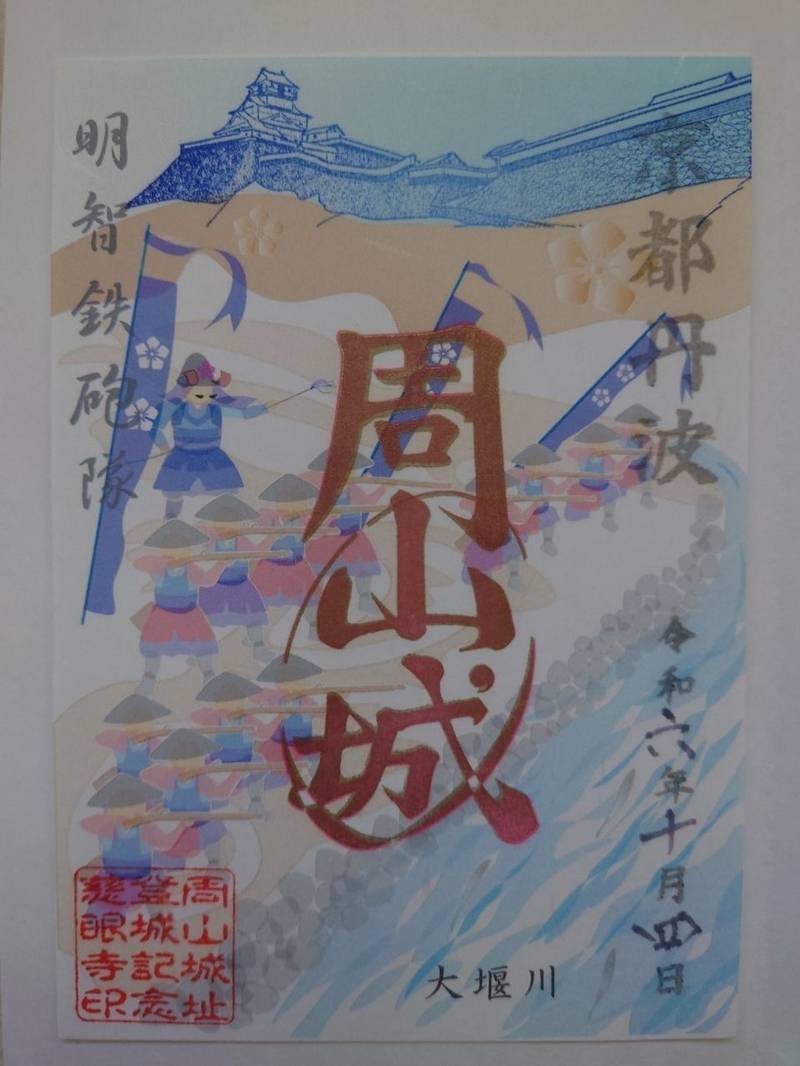 京都丹波
周山城
明智鉄砲隊
令和六年十月四日
大堰川
周山城址
登城記念
慈眼寺印